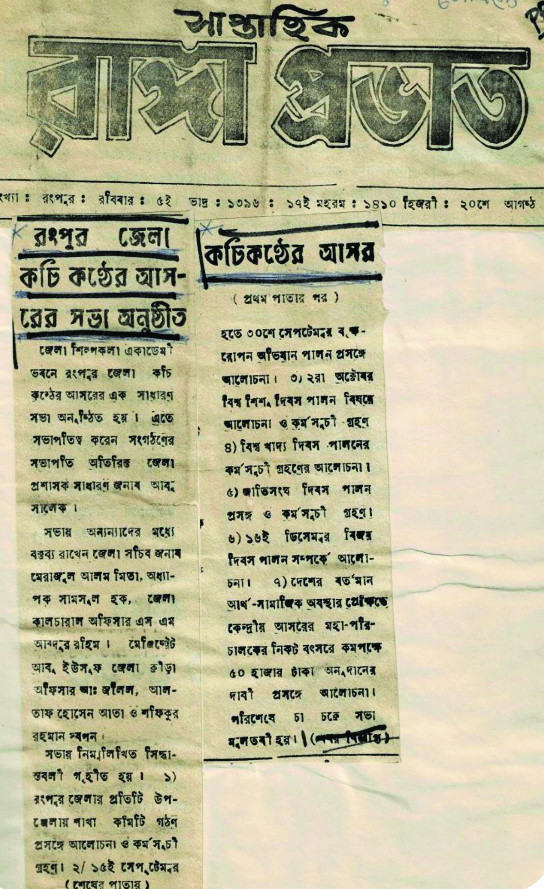 সাপ্তাহিক
রাঙ্গা প্রভাত
রংপুর : রবিবার : ৫ই ভাদ্র : ১৩৯৬ : ১৭ই মহরম : ১৪১০ হিজরী : ২০শে আগষ্ট
রংপুর জেলা
কচি কণ্ঠের আস-
রের সভা অনুষ্ঠীত
জেলা শিল্পকলা একাডেমী
ভবনে রংপুর জেলা কচি
কণ্ঠের আসরের এক সাধারণ
সভা অনুষ্ঠিত হয়। এতে
সভাপতিত্ব করেন সংগঠণের
সভাপতি অতিরিক্ত জেলা
প্রশাসক সাধারণ জনাব আবু
সালেক।
সভায় অন্যন্যাদের মধ্যে
বক্তব্য রাখেন জেলা সচিব জনাব
মেরাজুল আলম মিতা, অধ্যা-
পক সামসুল হক, জেলা
কালচারাল অফিসার এস এম
আব্দুর রহিম। মেজিষ্ট্রেট
আবু ইউসুফ জেলা ক্রীড়া
অফিসার আঃ জলিল, আল-
তাফ হোসেন আতা ও শফিকুর
রহমান স্বপন।
সভায় নিম্নলিখিত সিদ্ধা-
ন্তবলী গৃহীত হয়। ১)
রংপুর জেলার প্রতিটি উপ-
জেলায় শাখা কমিটি গঠণ
প্রসঙ্গে আলোচনা ও কর্মসূচী
গ্রহণ। ২/ ১৫ই সেপ্টেম্বর
(শেষের পাতায়)
কচিকণ্ঠের আসর
(প্রথম পাতার পর)
হতে ৩০শে সেপটেমবর বৃক্ষ-
রোপন অভিযান পালন প্রসঙ্গে
আলোচনা। ৩/ ২রা অক্টোবর
বিশ্ব শিশু দিবস পালন বিষয়ে
আলোচনা ও কর্মসূচী গ্রহণ
৪) বিশ্ব খাদ্য দিবস পালনের
কর্মসূচী গ্রহণের আলোচনা।
৫) জাতিসংঘ দিবস পালন
প্রসঙ্গ ও কর্মসূচী গ্রহণ।
৬) ১৬ই ডিসেমবর বিজয়
দিবস পালন সম্পর্কে আলো-
চনা। ৭) দেশের বর্তমান
আর্থ-সামাজিক অবস্থার প্রেক্ষিতে
কেন্দ্রীয় আসরের মহা-পরি-
চালকের নিকট বৎসরে কমপক্ষে
৫০ হাজার টাকা অনুদানের
দাবী প্রসঙ্গে আলোচনা।
পরিশেষে চা চক্রে সভা
মূলতবী হয়। (খবর বিজ্ঞপ্তি)